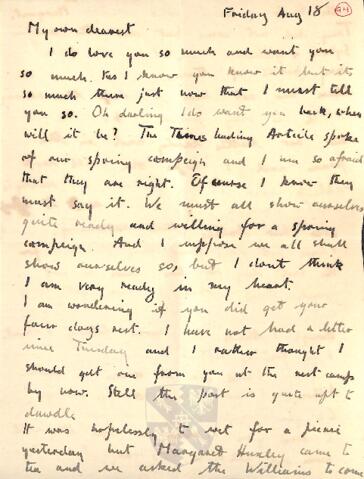 Friday Aug 18 94
My own dearest
I do love you so much and want you
so much. Yes I know you know it but its
so much there just now that I must tell
you so. Oh darling I do want you back, when
will it be? The Times leading Article spoke
of our spring campaign and I am so afraid
that they are right. Of course I know they
must say it. We must all show ourselves
quite ready and willing for a spring
campaign. And I suppose we all shall
show ourselves so, but I don't think
I am very ready in my heart.
I am wondering if you did get your
four days rest. I have not had a letter
since Tuesday and I rather thought I
should get one from you at the rest camp
by now. Still the post is quite apt to
dawdle
It was hopelessly wet for a picnic
yesterday but Margaret Huxley came to
tea and we asked the Williams to come